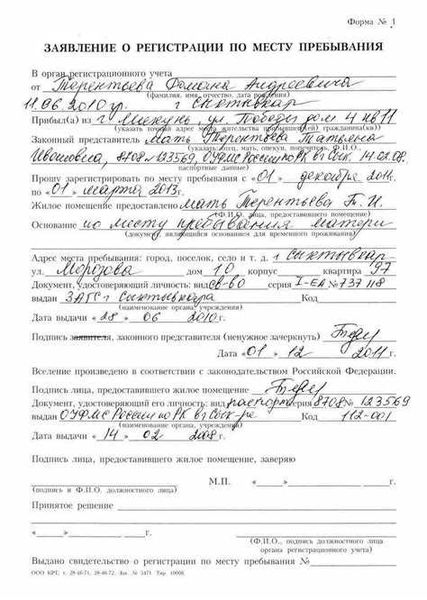 Форма № 1
ЗАЯВЛЕНИЕ О РЕГИСТРАЦИИ ПО МЕСТУ ПРЕБЫВАНИЯ
В орган регистрационного учета
от Терентьева Романа Андреевича
(фамилия, имя, отчество, дата рождения)
11.06.2010 гр. г Сыктывкар
Прибыл(а) из г Микунь, ул. Победы дом 4 кв 11
(указать точный адрес места жительства прибывшего(ей) гражданина(ки))
Законный представитель Мать Терентьева Татьяна
(указать: отец, мать, опекун, попечитель, Ф.И.О.
Ивановна, 8708 № 123569, ОУФМС России по РК в г Сык. 14.02.08.
паспортные данные)
Прошу зарегистрировать по месту пребывания с «01» декабря 2011г.
по «01» марта 2013г.
Жилое помещение предоставлено Мать Терентьева Т. И.
(Ф.И.О. лица, предоставившего помещение)
Основание по месту пребывания матери
(документ являющийся основанием для временного проживания)
Адрес места пребывания: город, поселок, село и т. д. г Сыктывкар
ул. Морозова дом 10 корпус квартира 97
Документ, удостоверяющий личность: вид св-во серия I-ЕА № 737118
выдан ЗАГС г Сыктывкара Код
(наименование органа, учреждения)
Дата выдачи «28» 06 2010г.
Подпись заявителя, законного представителя (ненужное зачеркнуть)
Дата «01» 12 2011 г.
Вселение произведено в соответствии с законодательством Российской Федерации.
Подпись лица, предоставившего жилое помещение
Документ, удостоверяющий его личность: вид паспорт серия 8708 № 123569
выдан ОУФМС России по РК в г Сык-ре Код 112-001
(наименование органа, учреждения)
Дата выдачи «14» 02 2008 г.
Подпись лица, предоставившего жилое помещение, заверяю
М.П. « » г.
(подпись и Ф.И.О. должностного лица)
Принятое решение
« » г.
(Ф.И.О., подпись должностного лица
органа регистрационного учета)
Выдано свидетельство о регистрации по месту пребывания №